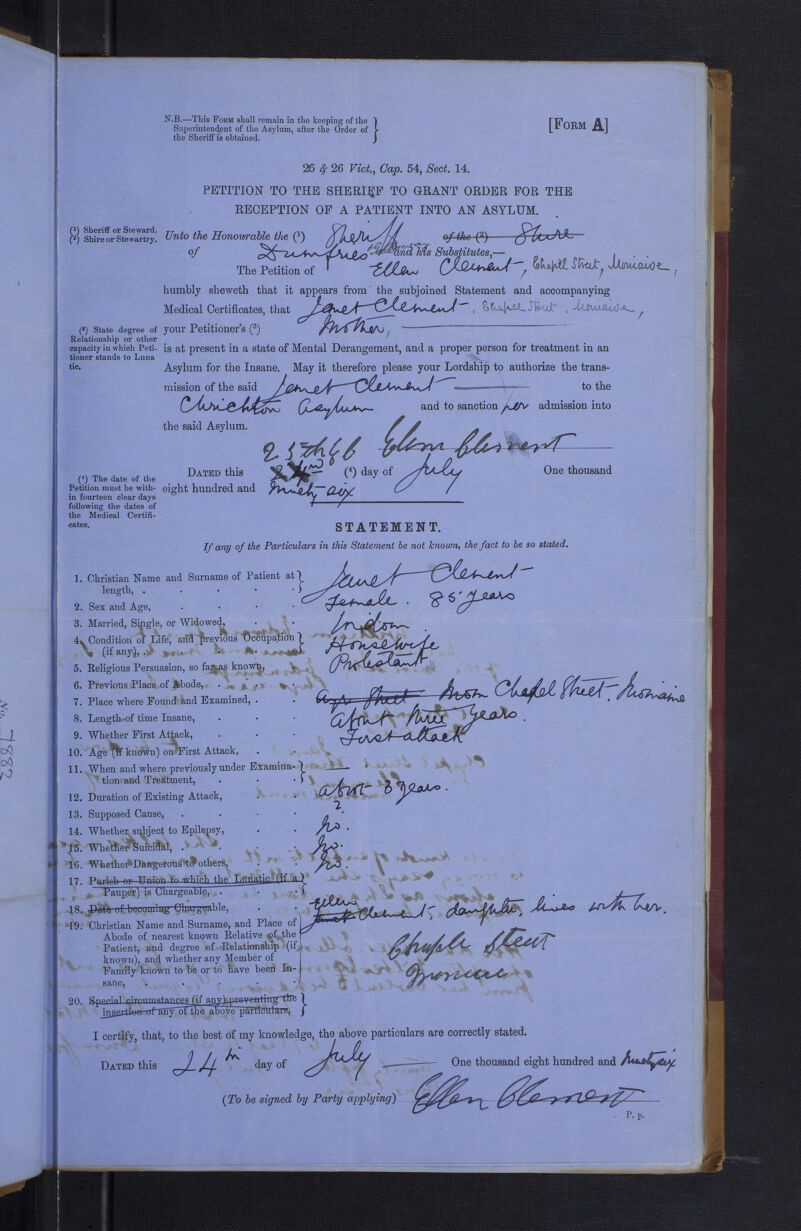 N.B.—This Form shall remain in the keeping of the
Superintendent of the Asylum, after the Order of
the Sheriff is obtained.
[Form A]
25 & 26 Vict., Cap. 54, Sect. 14.
PETITION TO THE SHERIFF TO GRANT ORDER FOR THE
RECEPTION OF A PATIENT INTO AN ASYLUM.
(1) Sheriff or Steward.
(2) Shire or Stewartry.
Unto the Honourable the (1) Sheriff of the (2) Shire
of Dumfries and his Substitutes,—
The Petition of Ellen Clement, Chapel Street, Moniaive,
humbly sheweth that it appears from the subjoined Statement and accompanying
Medical Certificates, that Janet Clement, Chapel Street, Moniaive,
(3) State degree of Relationship or other capacity in which Petitioner stands to Lunatic.
your Petitioner's (3) Mother,
is at present in a state of Mental Derangement, and a proper person for treatment in an
Asylum for the Insane. May it therefore please your Lordship to authorize the trans-
mission of the said Janet Clement to the
Chrichton Asylum and to sanction her admission into
the said Asylum.
25th Ellen Clement
Dated this (4) day of July One thousand
eight hundred and ninety six
(4) The date of the
Petition must be with-
in fourteen clear days
following the dates of
the Medical Certifi-
cates.
STATEMENT.
If any of the Particulars in this Statement be not known, the fact to be so stated.
1. Christian Name and Surname of Patient at length, . Janet Clement
2. Sex and Age, Female. 85 Years
3. Married, Single, or Widowed, Widow.
4. Condition of Life, and previous Occupation (if any), . Housewife
5. Religious Persuasion, so far as known, Protestant
6. Previous Place of Abode, .
7. Place where Found and Examined, . Street Chapel Street. Moniaive
8. Length of time Insane, About three years.
9. Whether First Attack, First attack
10. Age (if known) on First Attack, .
11. When and where previously under Examina-
tion and Treatment, —
12. Duration of Existing Attack, about 3 years.
13. Supposed Cause, . ?
14. Whether subject to Epilepsy, No.
15. Whether Suicidal, . No.
16. Whether Dangerous to others, No.
17. Parish or Union to which the Lunatic (if a
Pauper) is Chargeable, .
18. Date of becoming Chargeable,
19. Christian Name and Surname, and Place of
Abode of nearest known Relative of the
Patient, and degree of Relationship (if
known), and whether any Member of
Family known to be or to have been In-
sane, .
Ellen
Janet Clement, daughter, lives with her.
Chaple Street
20. Special circumstances (if any) preventing the
insertion of any of the above particulars,
I certify, that, to the best of my knowledge, the above particulars are correctly stated.
Dated this 24th day of July One thousand eight hundred and ninety six
(To be signed by Party applying) Ellen Clement
P. p.
No. 7882